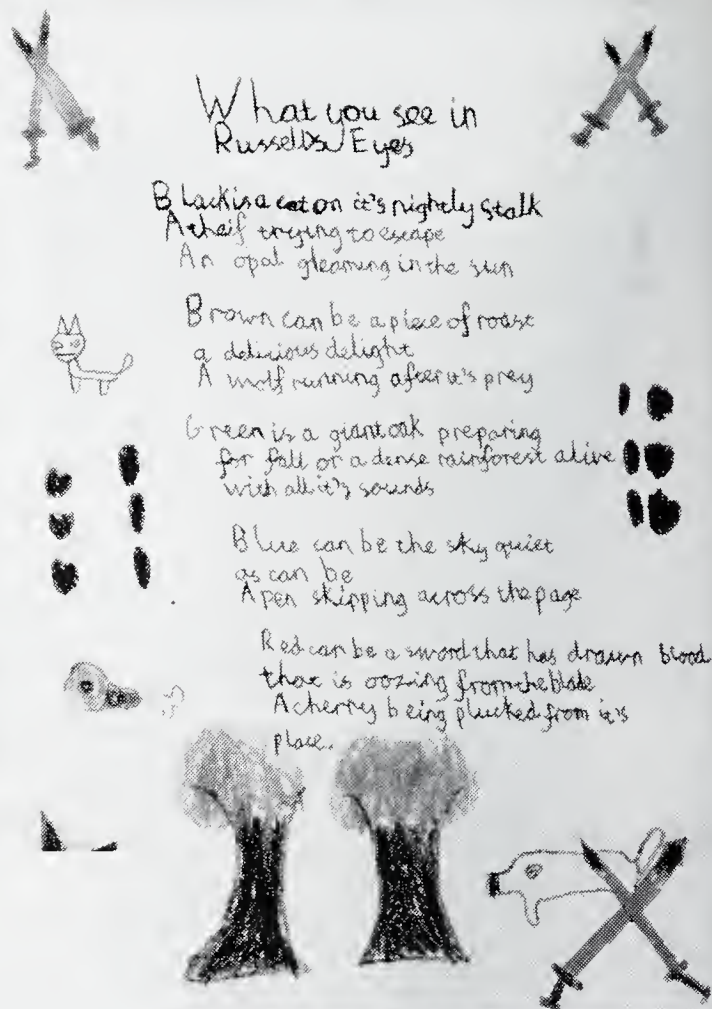 What you see in
Russells Eyes
Black is a cat on it's nightly stalk
A theif trying to escape
An opal gleaming in the sun
Brown can be a piece of roast
a delicious delight
A wolf running after it's prey
Green is a giant oak preparing
for fall or a dense rainforest alive
with all it's sounds
Blue can be the sky quiet
as can be
A pen skipping across the page
Red can be a sword that has drawn blood
that is oozing from the blade
A cherry being plucked from it's
place.